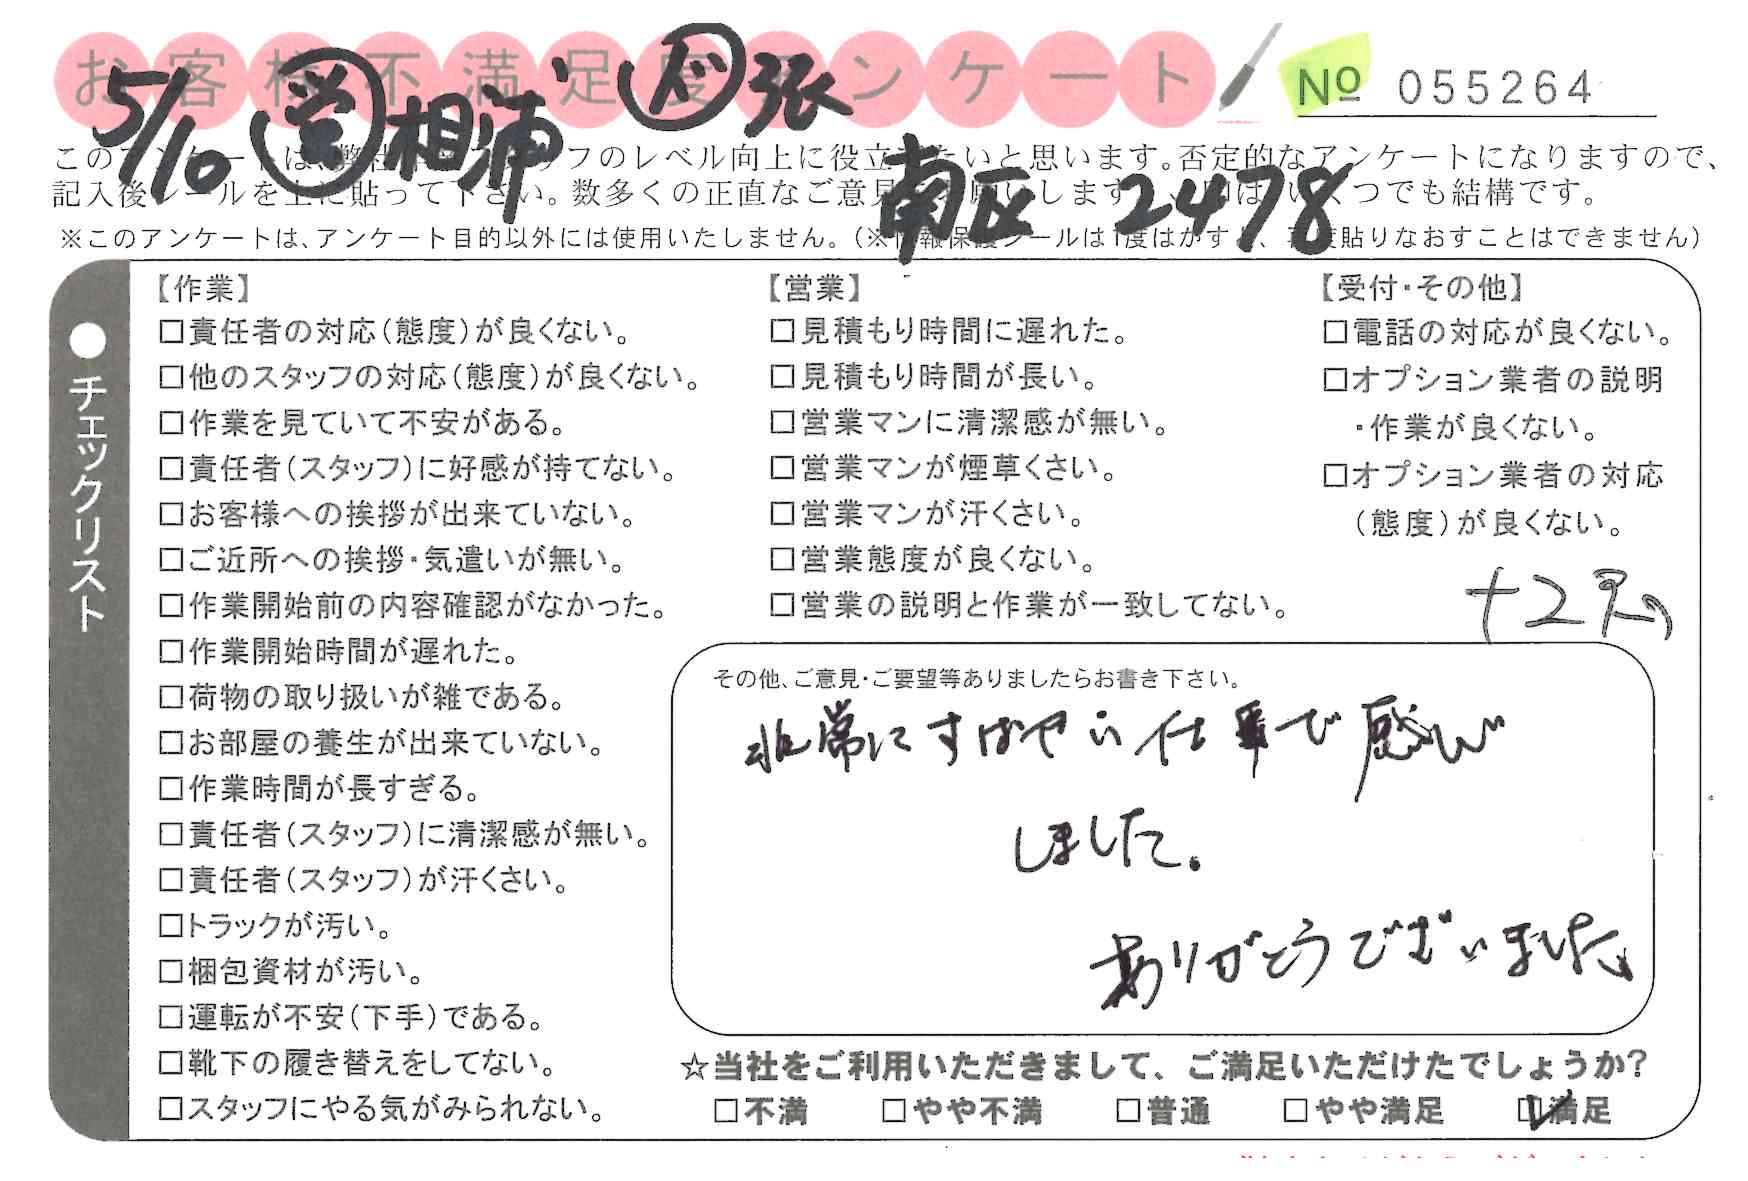 お客様不満足度アンケート
No 055264
5/10 営 相浦、 ド 張
南区 2478
このアンケートは、弊社 フのレベル向上に役立 たいと思います。否定的なアンケートになりますので、
記入後シールを上に貼って下さい。数多くの正直なご意見 お願いします。 はいくつでも結構です。
※このアンケートは、アンケート目的以外には使用いたしません。(※情報保護シールは1度はがすと、再度貼りなおすことはできません)
●チェックリスト
【作業】
□責任者の対応(態度)が良くない。
□他のスタッフの対応(態度)が良くない。
□作業を見ていて不安がある。
□責任者(スタッフ)に好感が持てない。
□お客様への挨拶が出来ていない。
□ご近所への挨拶・気遣いが無い。
□作業開始前の内容確認がなかった。
□作業開始時間が遅れた。
□荷物の取り扱いが雑である。
□お部屋の養生が出来ていない。
□作業時間が長すぎる。
□責任者(スタッフ)に清潔感が無い。
□責任者(スタッフ)が汗くさい。
□トラックが汚い。
□梱包資材が汚い。
□運転が不安(下手)である。
□靴下の履き替えをしてない。
□スタッフにやる気がみられない。
【営業】
□見積もり時間に遅れた。
□見積もり時間が長い。
□営業マンに清潔感が無い。
□営業マンが煙草くさい。
□営業マンが汗くさい。
□営業態度が良くない。
□営業の説明と作業が一致してない。
【受付・その他】
□電話の対応が良くない。
□オプション業者の説明
・作業が良くない。
□オプション業者の対応
(態度)が良くない。
+2
その他、ご意見・ご要望等ありましたらお書き下さい。
非常にすばやい仕事で感心
しました。
ありがとうございました
☆当社をご利用いただきまして、ご満足いただけたでしょうか?
□不満 □やや不満 □普通 □やや満足 ☑満足